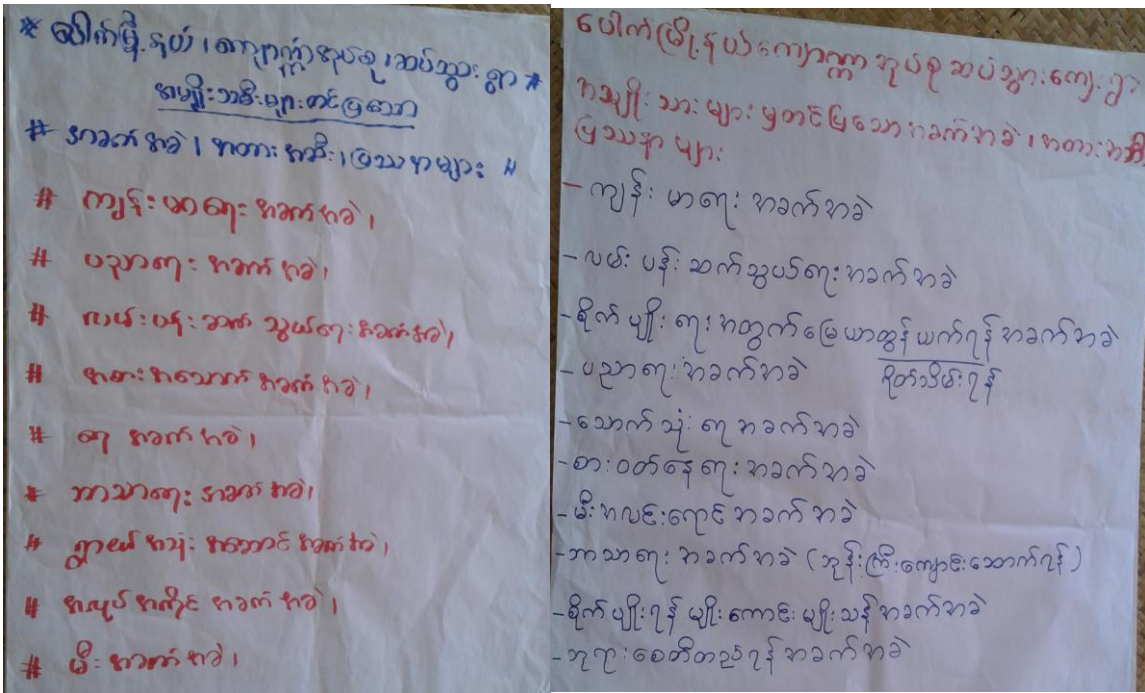 * ပေါက်မြို့နယ်၊ ကျောဏ္ဏာအုပ်စု၊ ဆပ်သွားရွာ *
အမျိုးသမီးများတင်ပြသော
# အခက်အခဲ၊ အတားအဆီး၊ ပြဿနာများ #
# ကျန်းမာရေး အခက်အခဲ၊
# ပညာရေး အခက်အခဲ၊
# လမ်းပန်းဆက်သွယ်ရေး အခက်အခဲ၊
# အစားအသောက် အခက်အခဲ၊
# ရေ အခက်အခဲ၊
# ဘာသာရေး အခက်အခဲ၊
# အခက်အခဲ၊
# အလုပ်အကိုင် အခက်အခဲ၊
# မီး အခက်အခဲ၊
ပေါက်မြို့နယ်ကျောဏ္ဏာအုပ်စုဆပ်သွားကျေးရွာ
အမျိုးသားများမှတင်ပြသောအခက်အခဲ၊ အတားအဆီး
ပြဿနာများ
- ကျန်းမာရေး အခက်အခဲ
- လမ်းပန်းဆက်သွယ်ရေး အခက်အခဲ
- စိုက်ပျိုးရေးအတွက်မြေယာထွန်ယက်ရန် အခက်အခဲ
- ပညာရေး အခက်အခဲ ရိတ်သိမ်းရန်
- သောက်သုံးရေ အခက်အခဲ
- စားဝတ်နေရေး အခက်အခဲ
- မီးအလင်းရောင် အခက်အခဲ
- ဘာသာရေး အခက်အခဲ (ဘုန်းကြီးကျောင်းဆောက်ရန်)
- စိုက်ပျိုးရန် မျိုးကောင်းမျိုးသန့် အခက်အခဲ
- ဘုရားစေတီတည်ရန် အခက်အခဲ